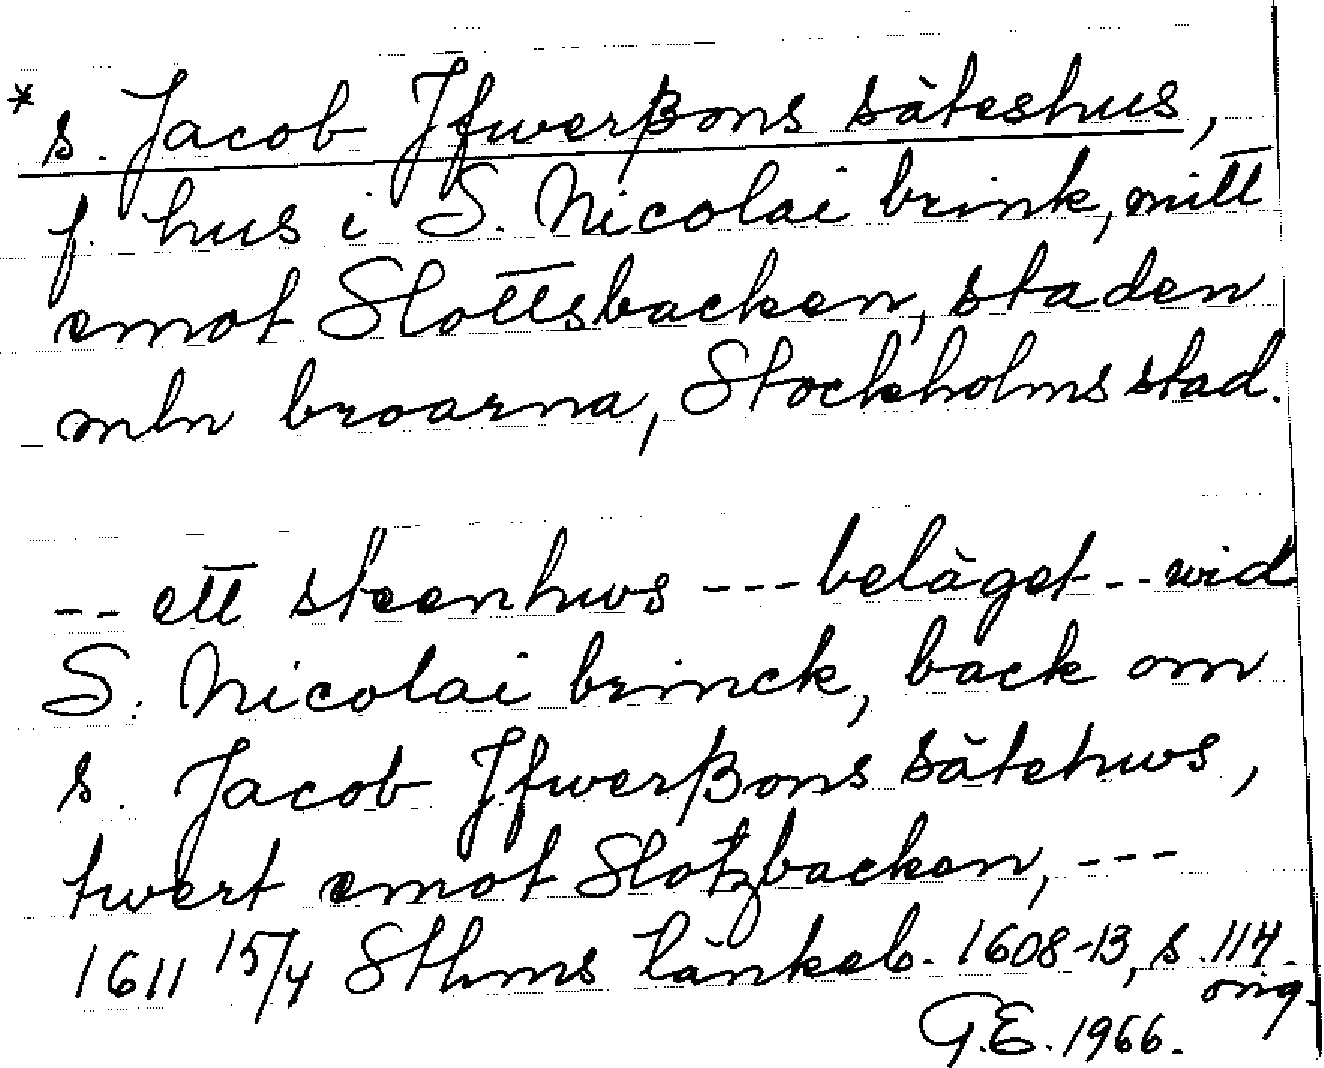 * s. Jacob Jfwerßons säteshus,
f. hus i S. Nicolai brink, mitt
emot Slottsbacken, staden
mln broarna, Stockholms stad.
-- ett steenhws --- beläget -- wid
S. Nicolai brinck, back om
s. Jacob Jfwerßons sätehws,
twert emot Slotzbacken, ---
1611 15/4 Sthms tänkeb. 1608-13, s. 114.
orig.
G.E. 1966.